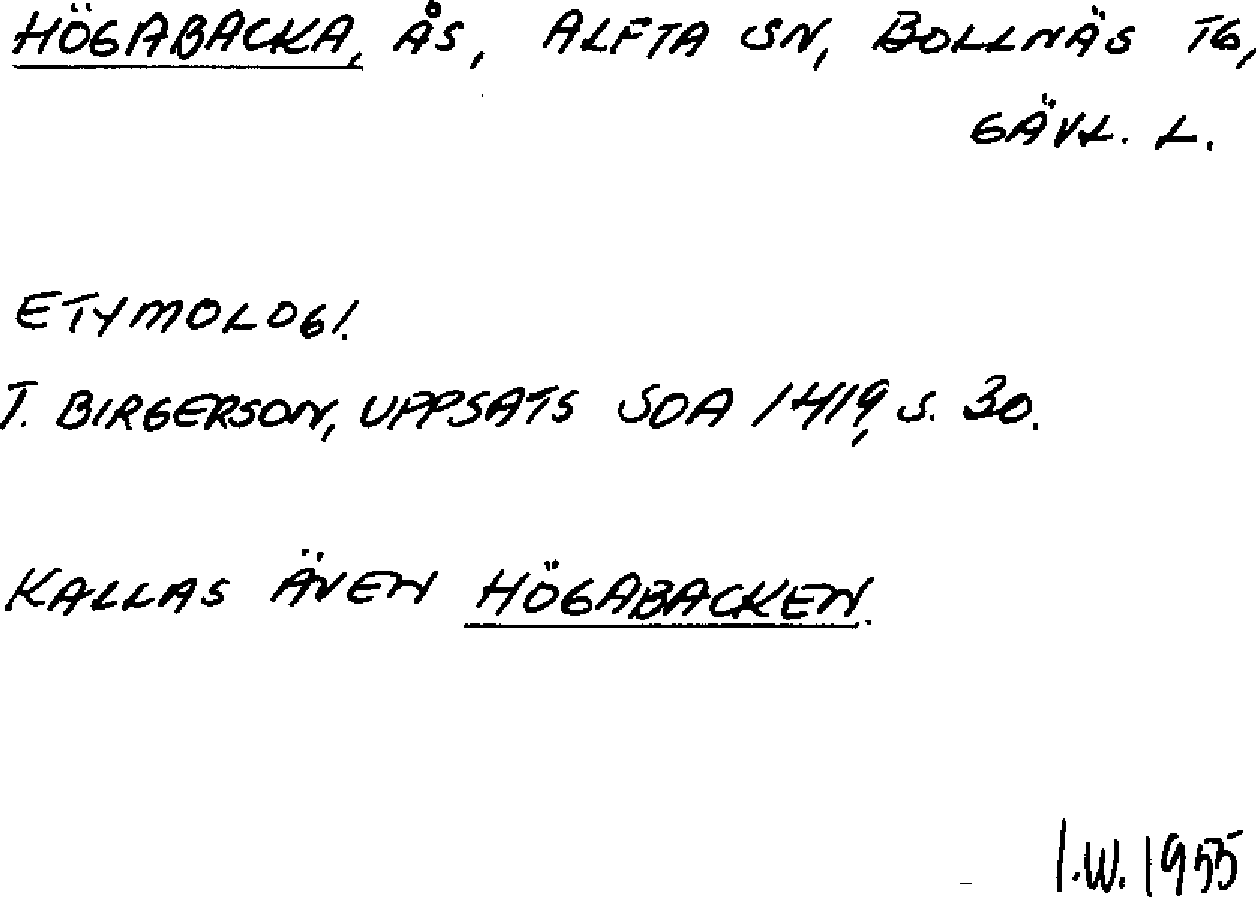 HÖGABACKA, ÅS, ALFTA SN, BOLLNÄS TG,
GÄVL. L.
ETYMOLOGI.
T. BIRGERSON, UPPSATS SOA 1419, S. 30.
KALLAS ÄVEN HÖGABACKEN.
I.W. 1955